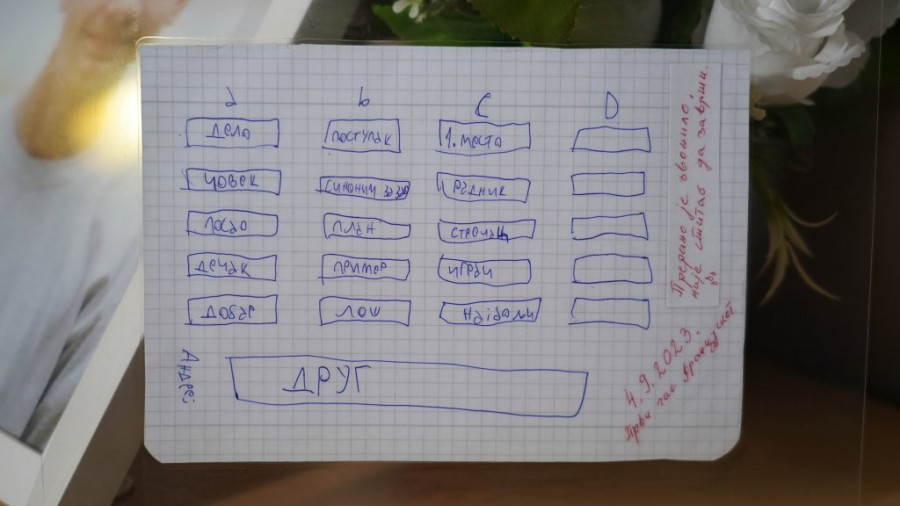 a b C D
дело поступак 1. место
човек синоним за
посао план
дечак пример играч
добар лош најбољи
ДРУГ
Андреј
Прерано је звонило:
није стигао да заврши.
4.9.2023.
Први час